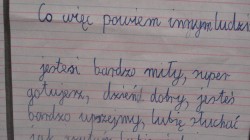 Co więc powiem innym ludzi
jesteś bardzo miły, super
gotujesz, dzień dobry, jesteś
bardzo uprzejmy, lubię słuchać
jak